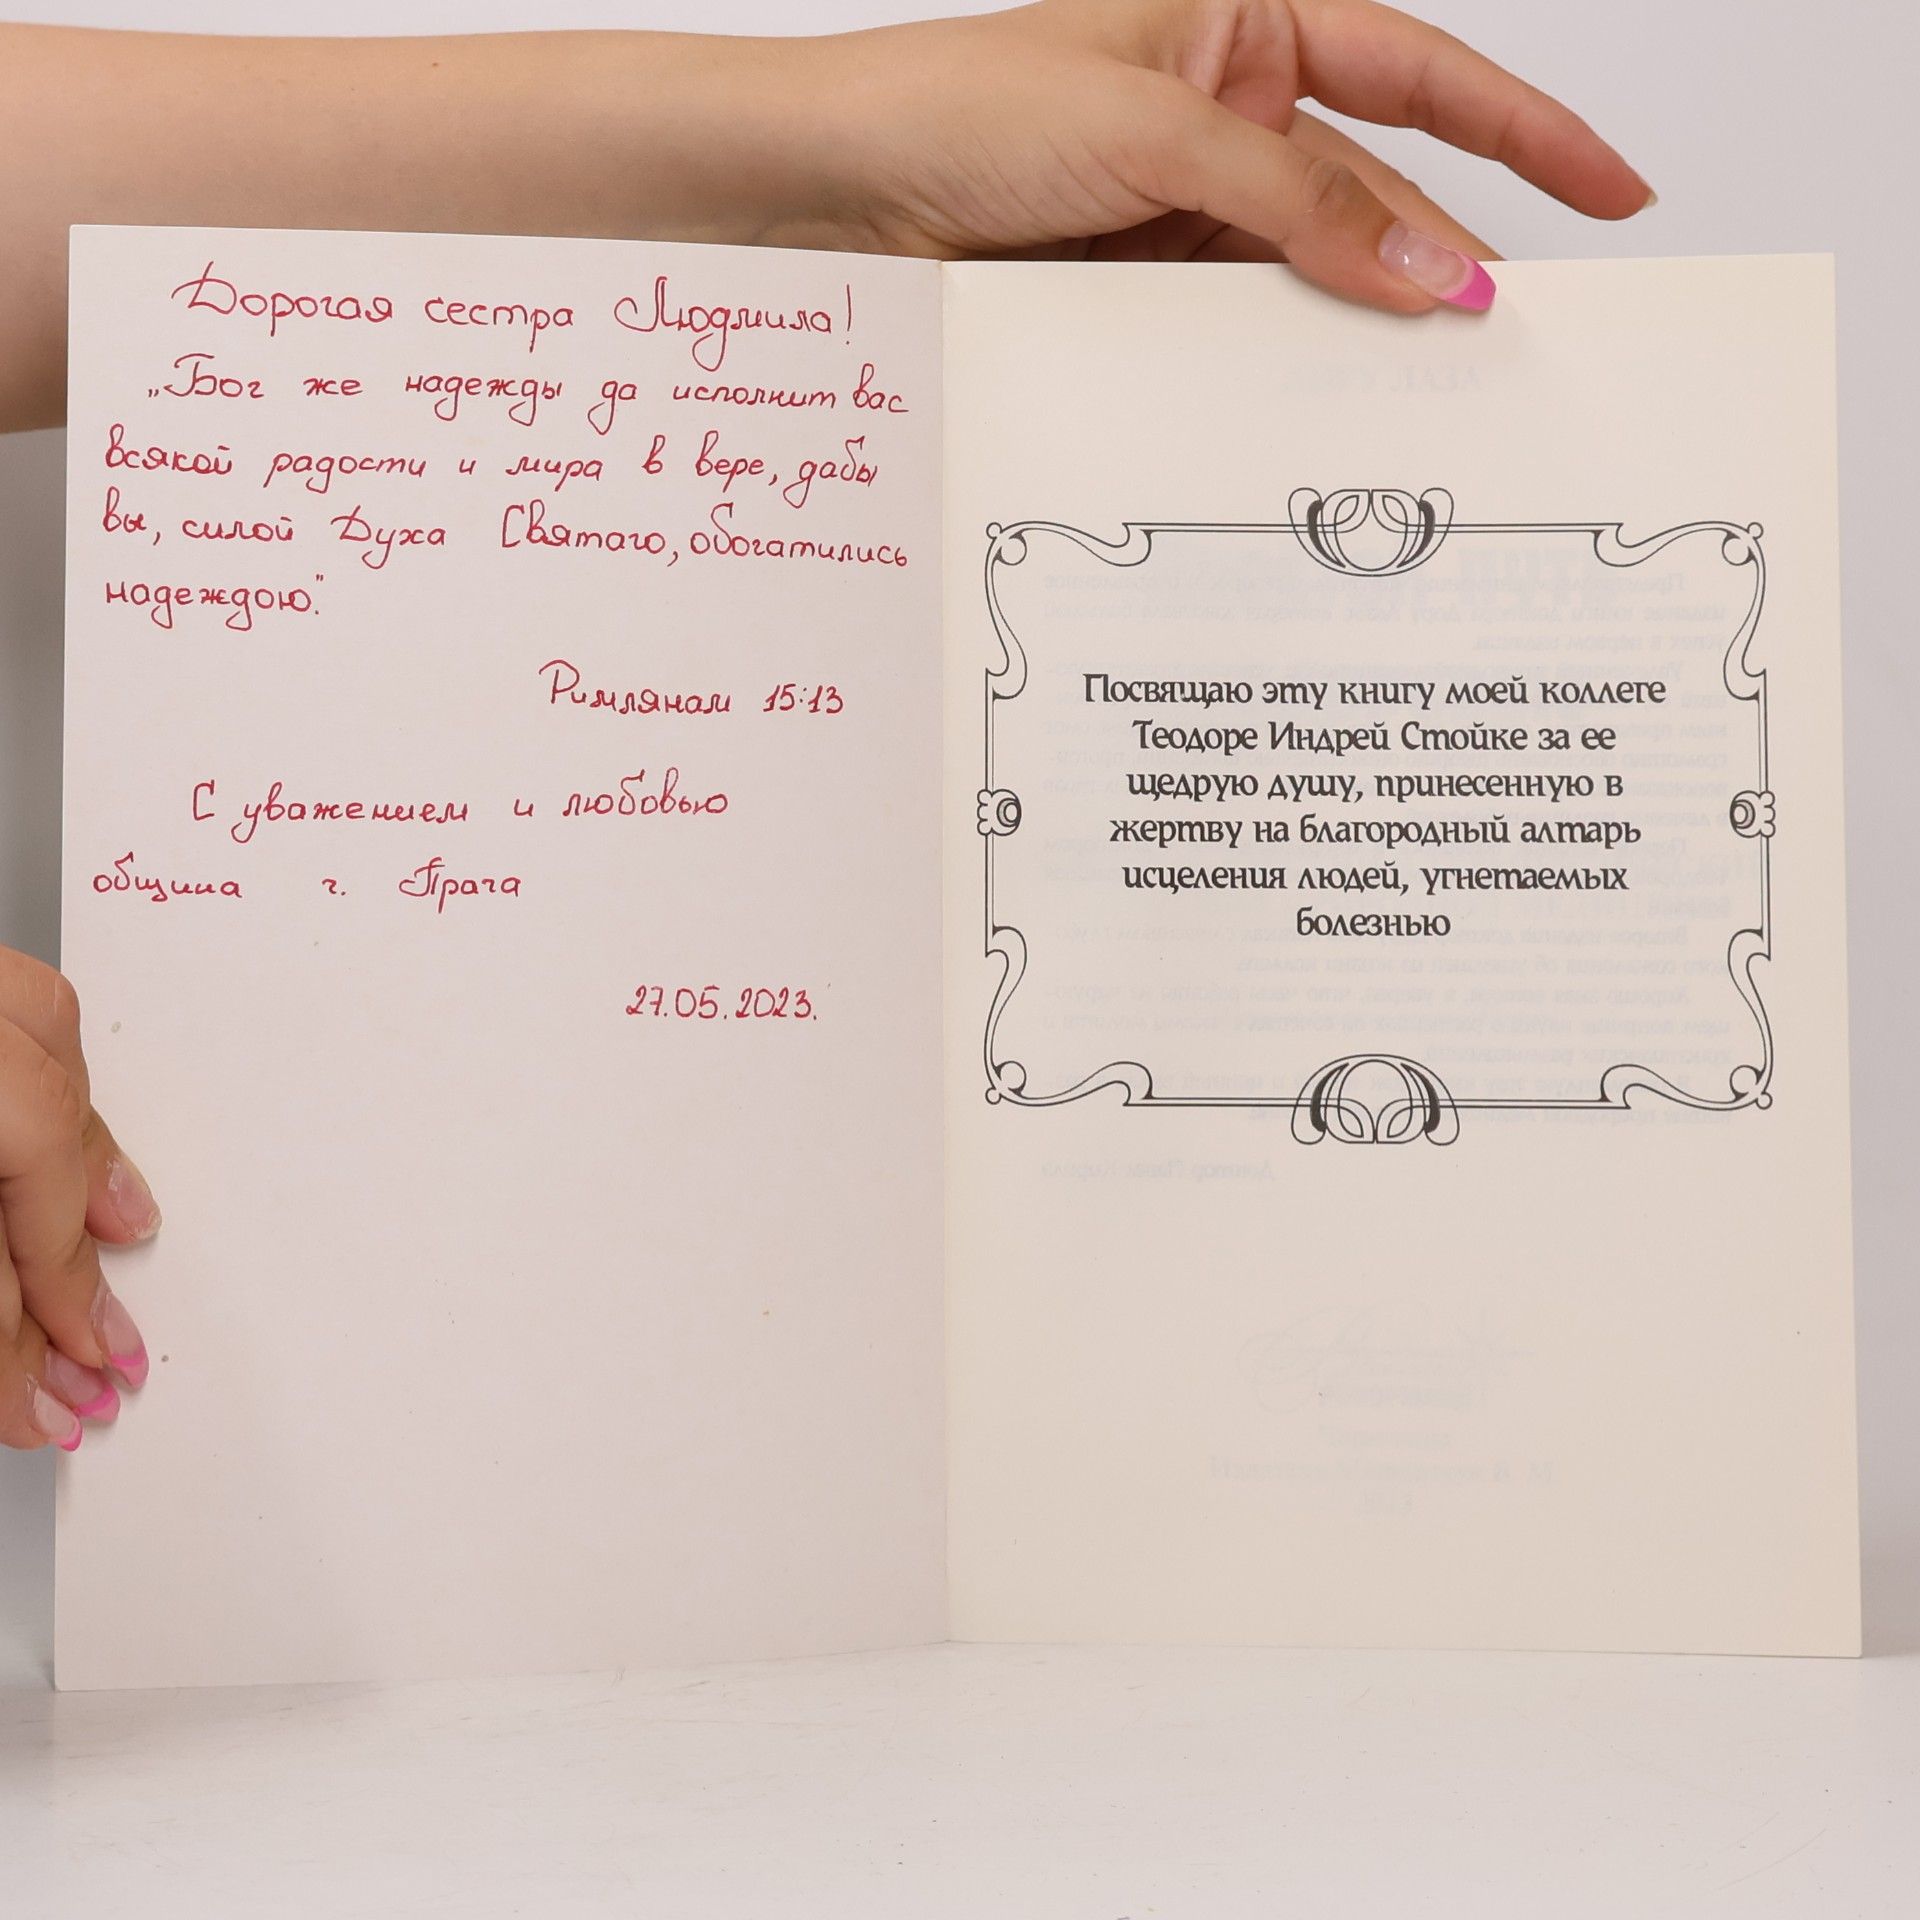 Дорогая сестра Людмила!
„Бог же надежды да исполнит вас
всякой радости и мира в вере, дабы
вы, силой Духа Святаго, обогатились
надеждою."
Римлянам 15:13
С уважением и любовью
община г. Прага
27.05.2023.
Посвящаю эту книгу моей коллеге
Теодоре Индрей Стойке за ее
щедрую душу, принесенную в
жертву на благородный алтарь
исцеления людей, угнетаемых
болезнью